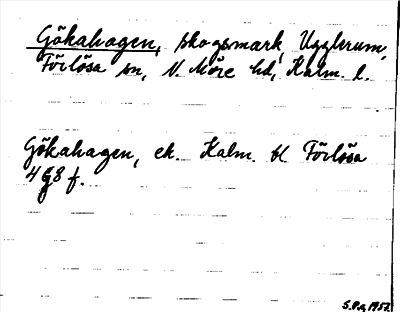 Gökahagen, skogsmark, Ugglerum,
Förlösa sn, N. Möre hd, Kalm. l.
Gökahagen, ek. Kalm. bl Förlösa
4G8 f.
S.P.g, 1957.